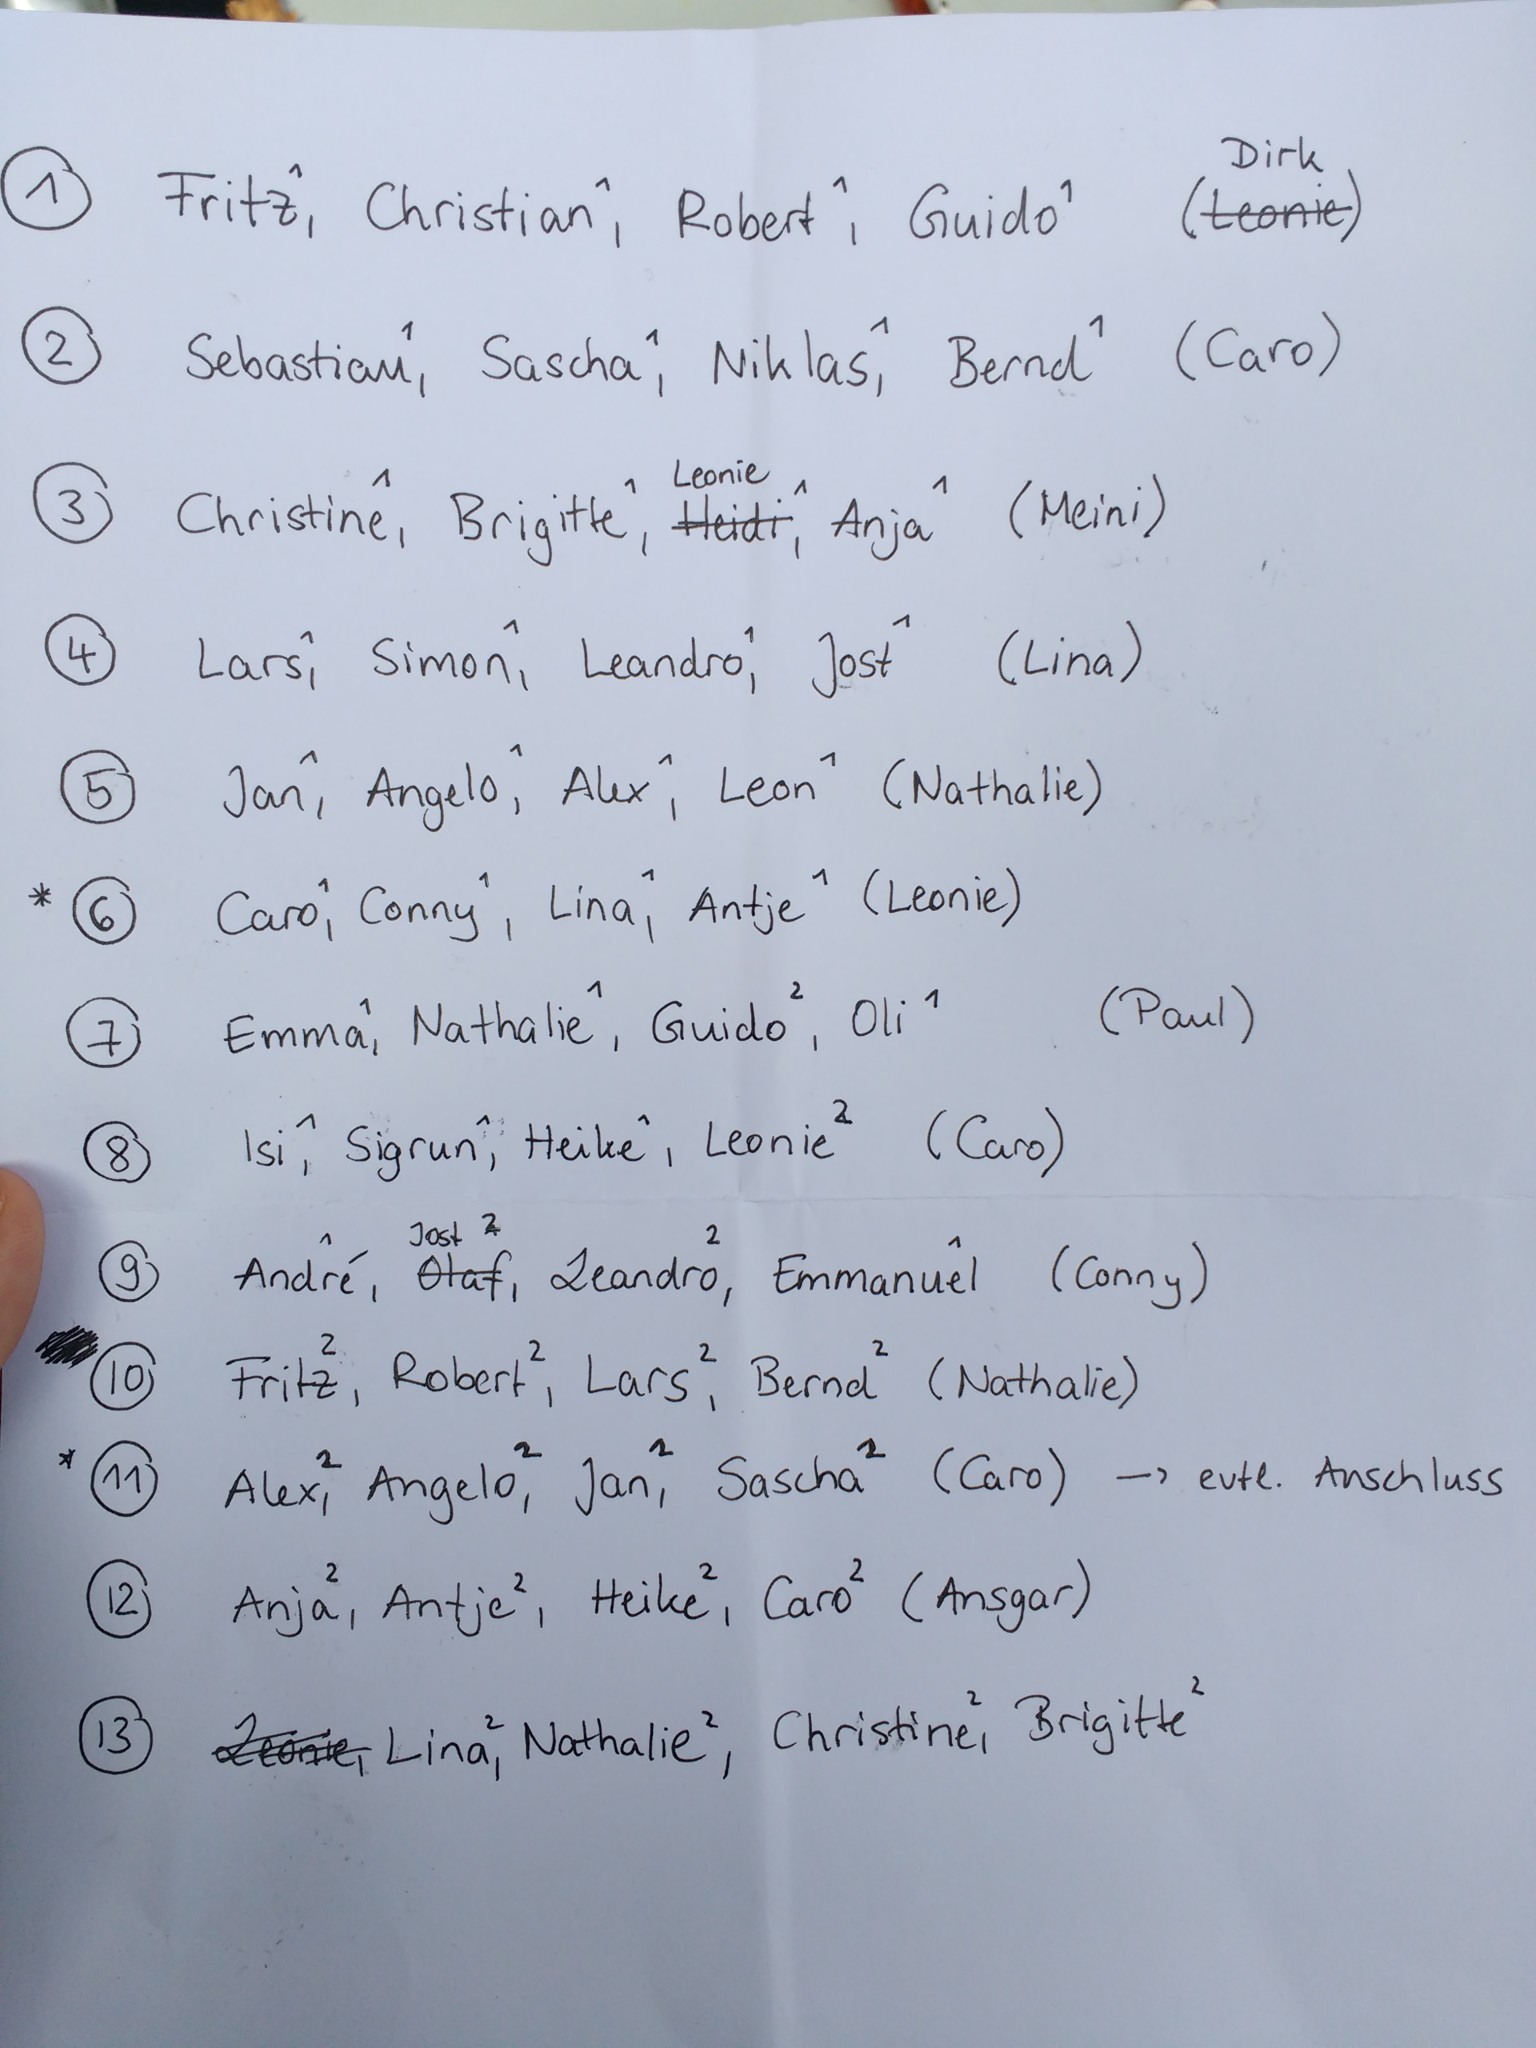 Dirk
① Fritz¹, Christian¹, Robert¹, Guido¹ (Leonie)
② Sebastian¹, Sascha¹, Niklas¹, Bernd¹ (Caro)
Leonie
③ Christine¹, Brigitte¹, Heidi¹, Anja¹ (Meini)
④ Lars¹, Simon¹, Leandro¹, Jost¹ (Lina)
⑤ Jan¹, Angelo¹, Alex¹, Leon¹ (Nathalie)
* ⑥ Caro¹, Conny¹, Lina¹, Antje¹ (Leonie)
⑦ Emma¹, Nathalie¹, Guido², Oli¹ (Paul)
⑧ Isi¹, Sigrun¹, Heike¹, Leonie² (Caro)
Jost²
⑨ André¹, Olaf, Leandro², Emmanuel¹ (Conny)
⑩ Fritz², Robert², Lars², Bernd² (Nathalie)
* ⑪ Alex², Angelo², Jan², Sascha² (Caro) → evtl. Anschluss
⑫ Anja², Antje², Heike², Caro² (Ansgar)
⑬ Leonie, Lina², Nathalie², Christine², Brigitte²